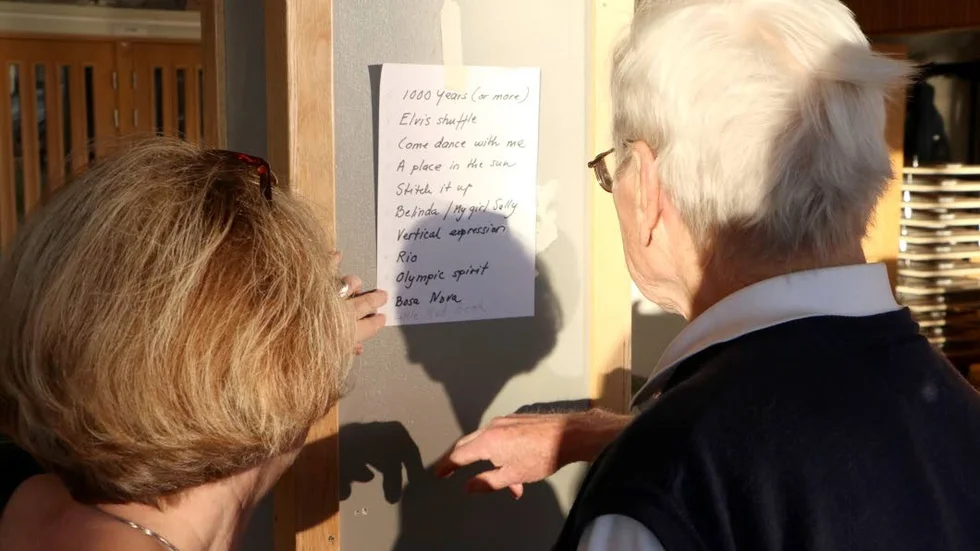 1000 Years (or more)
Elvis shuffle
Come dance with me
A place in the sun
Stitch it up
Belinda / My girl Sally
Vertical expression
Rio
Olympic spirit
Bosa Nova